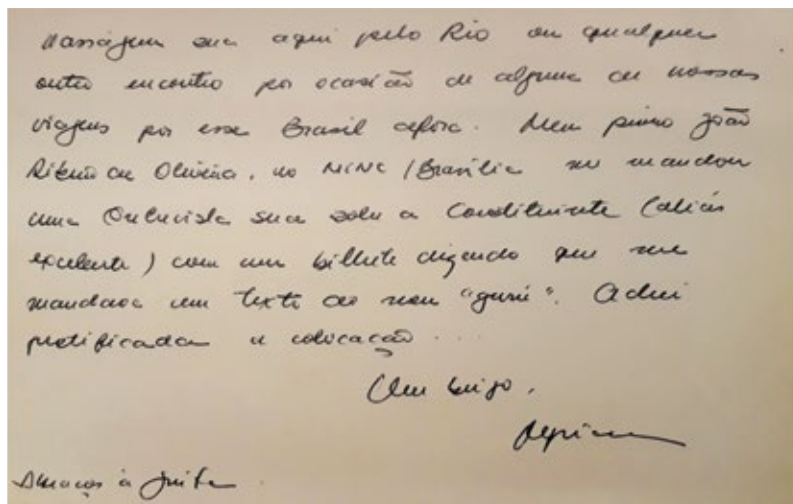 passagem sua aqui pelo Rio ou qualquer
outro encontro por ocasião de alguma de nossas
viagens por esse Brasil afora. Meu primo João
Ribeiro de Oliveira, no MINC / Brasília me mandou
uma entrevista sua sobre a Constituinte (aliás
excelente) com um bilhete dizendo que me
mandava um texto do meu "guru". Achei
gratificada a colocação...
Um beijo,
Abraços à